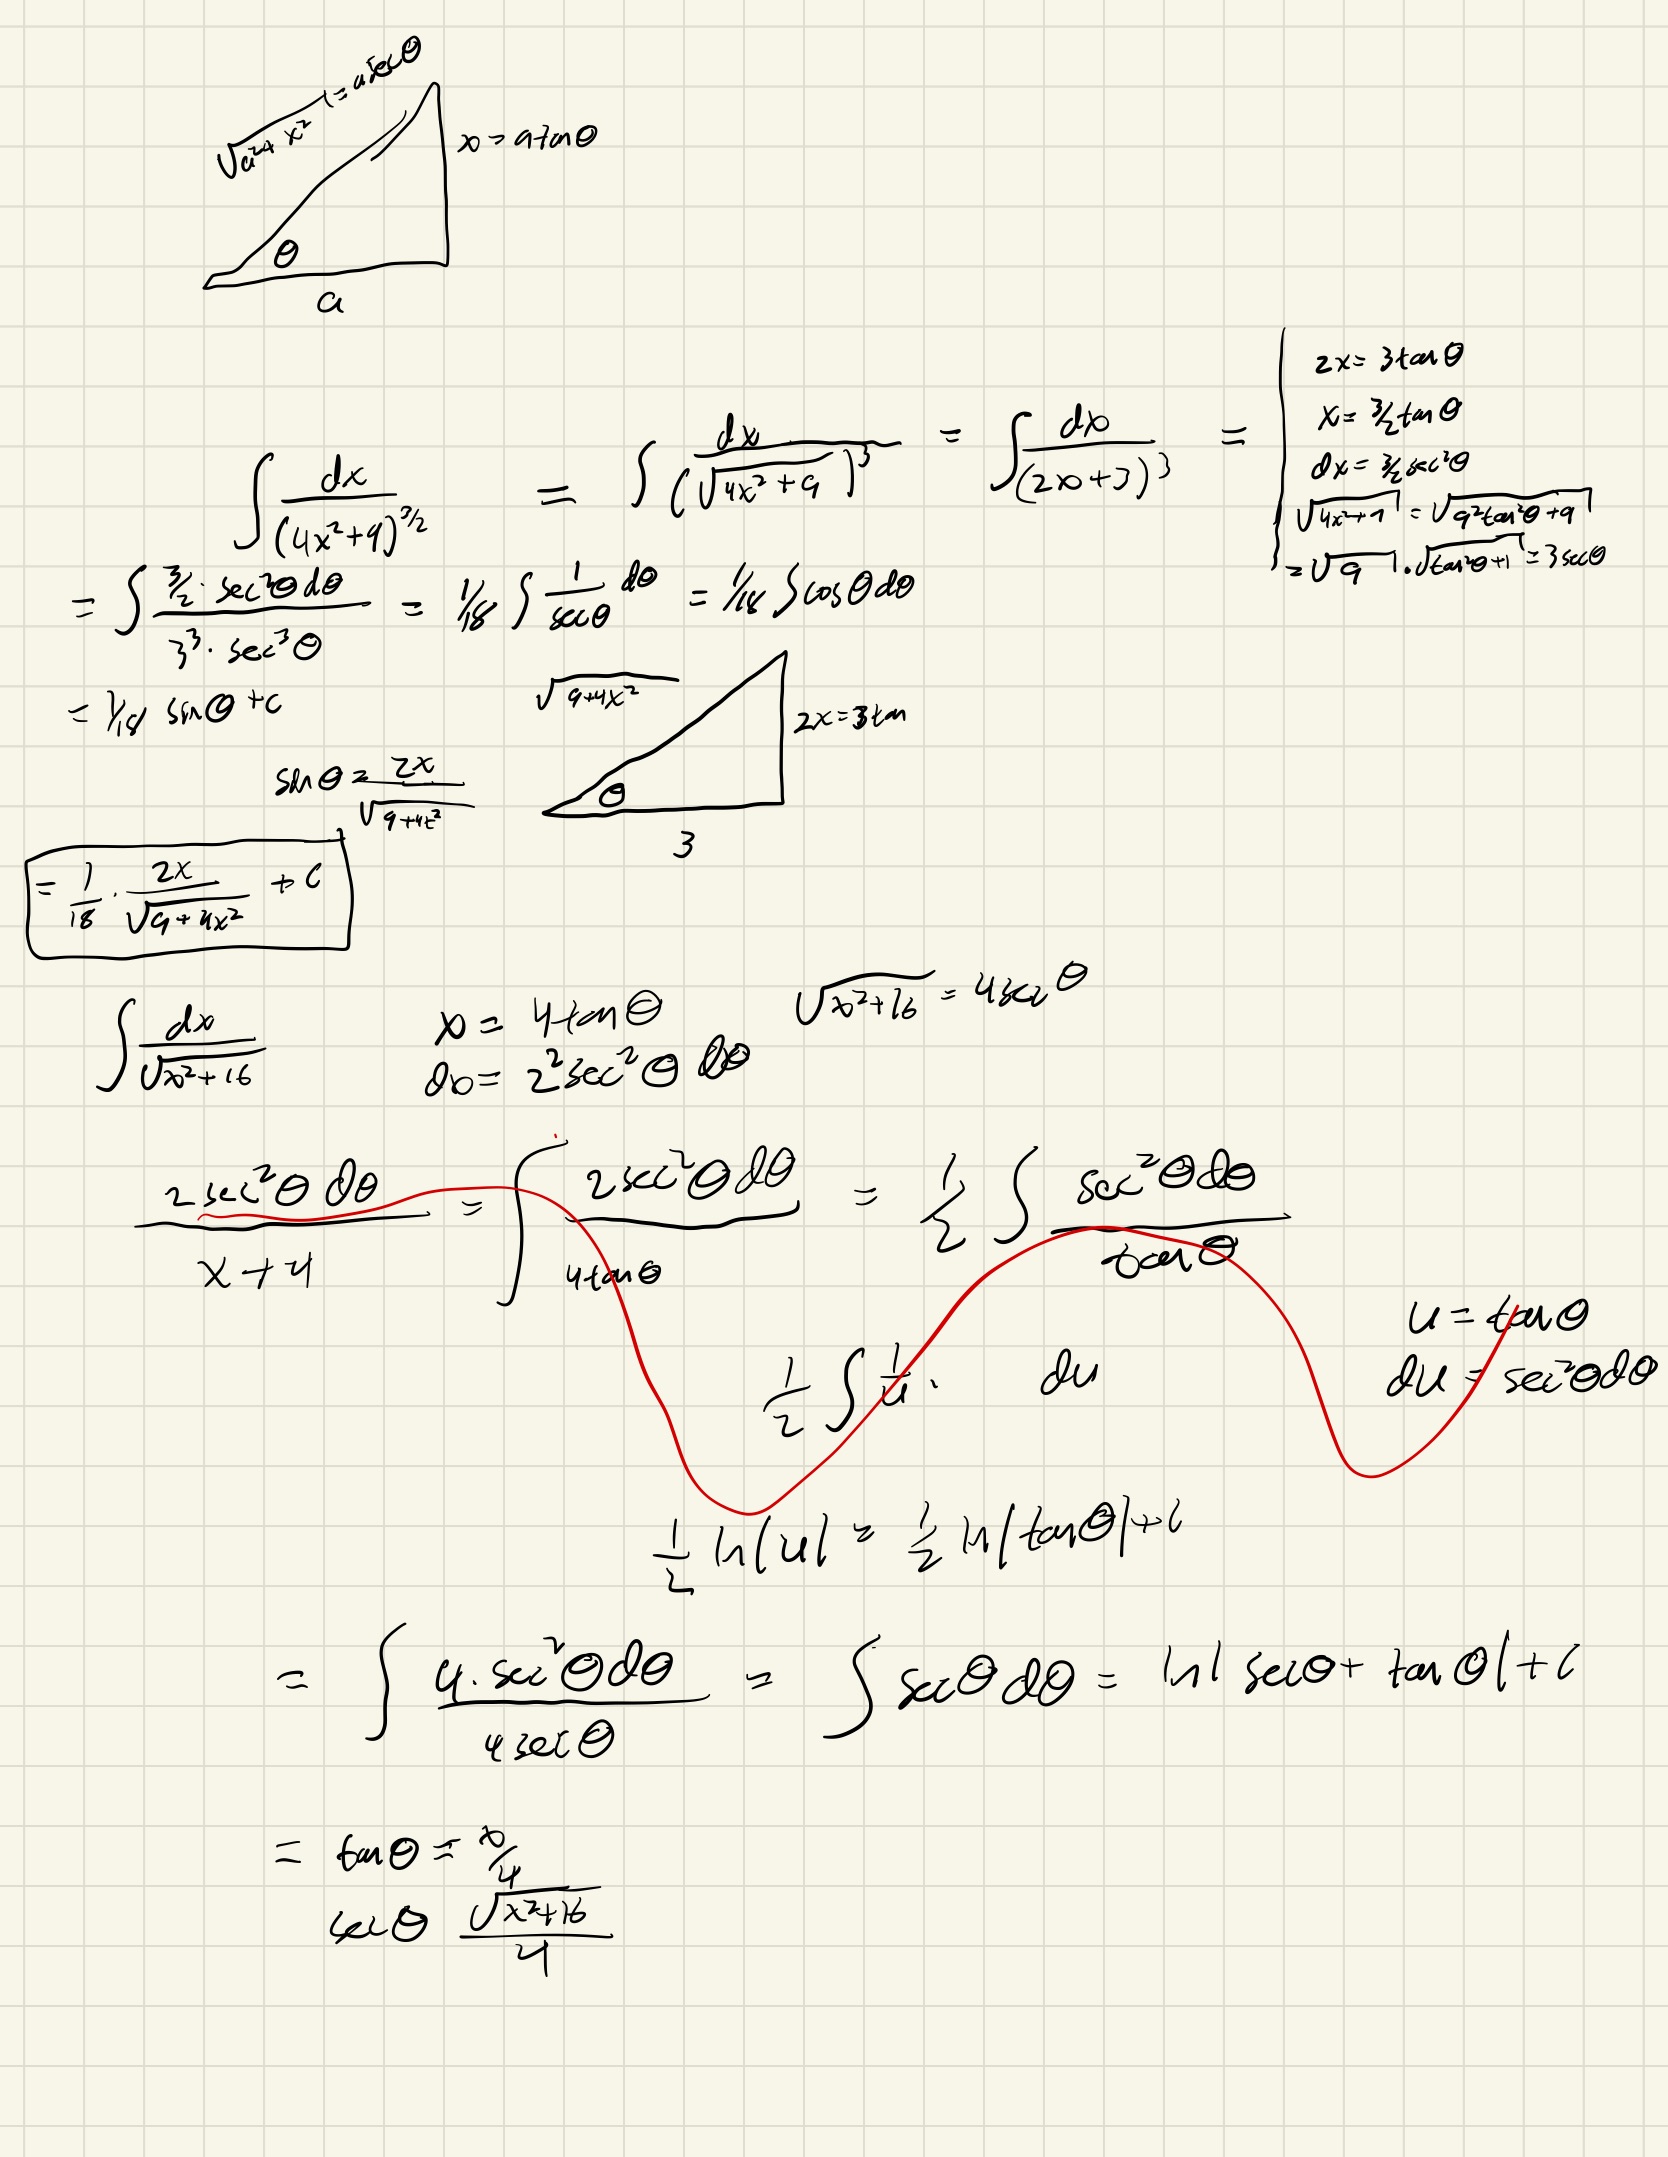 √(a²+x²) = a secθ
x = a tanθ
θ
a
2x = 3tanθ
x = 3/2 tanθ
dx = 3/2 sec²θ
√(4x²+9) = √(9²tan²θ+9)
= √9 · √(tan²θ+1) = 3secθ
∫ dx/(4x²+9)^(3/2) = ∫ dx/(√(4x²+9))³ = ∫ dx/(2x+3)³ =
= ∫ (3/2 · sec²θ dθ)/(3³ · sec³θ) = 1/18 ∫ 1/secθ dθ = 1/18 ∫ cosθ dθ
= 1/18 sinθ + C
√(9+4x²)
2x = 3tan
θ
3
sinθ = 2x/√(9+4x²)
= 1/18 · 2x/√(9+4x²) + C
∫ dx/√(x²+16)
x = 4tanθ
√(x²+16) = 4secθ
dx = 2²sec²θ dθ
2sec²θ dθ/(x+4) = ∫ 2sec²θ dθ/(4tanθ) = 1/2 ∫ sec²θ dθ/tanθ
u = tanθ
du = sec²θ dθ
1/2 ∫ 1/u · du
1/2 ln|u| = 1/2 ln|tanθ| + C
= ∫ 4·sec²θ dθ/(4secθ) = ∫ secθ dθ = ln|secθ + tanθ| + C
= tanθ = x/4
secθ √(x²+16)/4